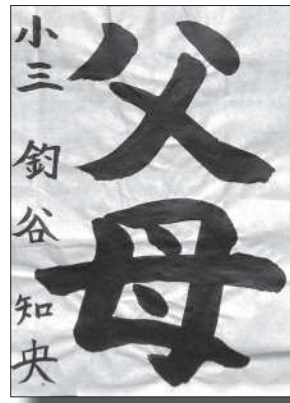 父母
小三 釣谷 知央